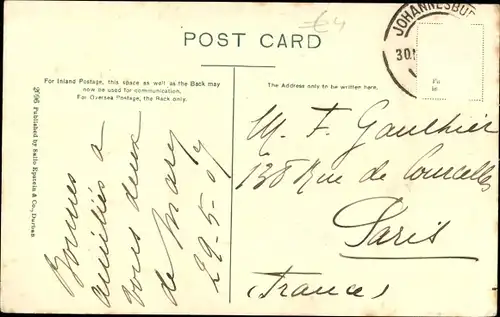 €4
POST CARD
JOHANNESBU
30
For Inland Postage, this space as well as the Back may
now be used for communication.
For Oversea Postage, the Back only.
The Address only to be written here.
Bonnes
amitiés à
vous deux
de Mary
29-5-07
M. F. Gauthier
138 Rue de Courcelles
Paris
(France)
2696 Published by Sallo Epstein & Co., Durban